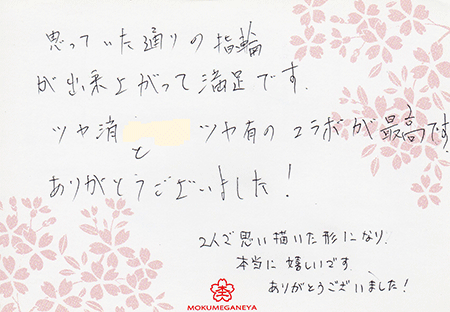 思っていた通りの指輪
が出来上がって満足です.
ツヤ消 と ツヤ有のコラボが最高です
ありがとうございました!
2人で思い描いた形になり.
本当に嬉しいです.
ありがとうございました!
MOKUMEGANEYA